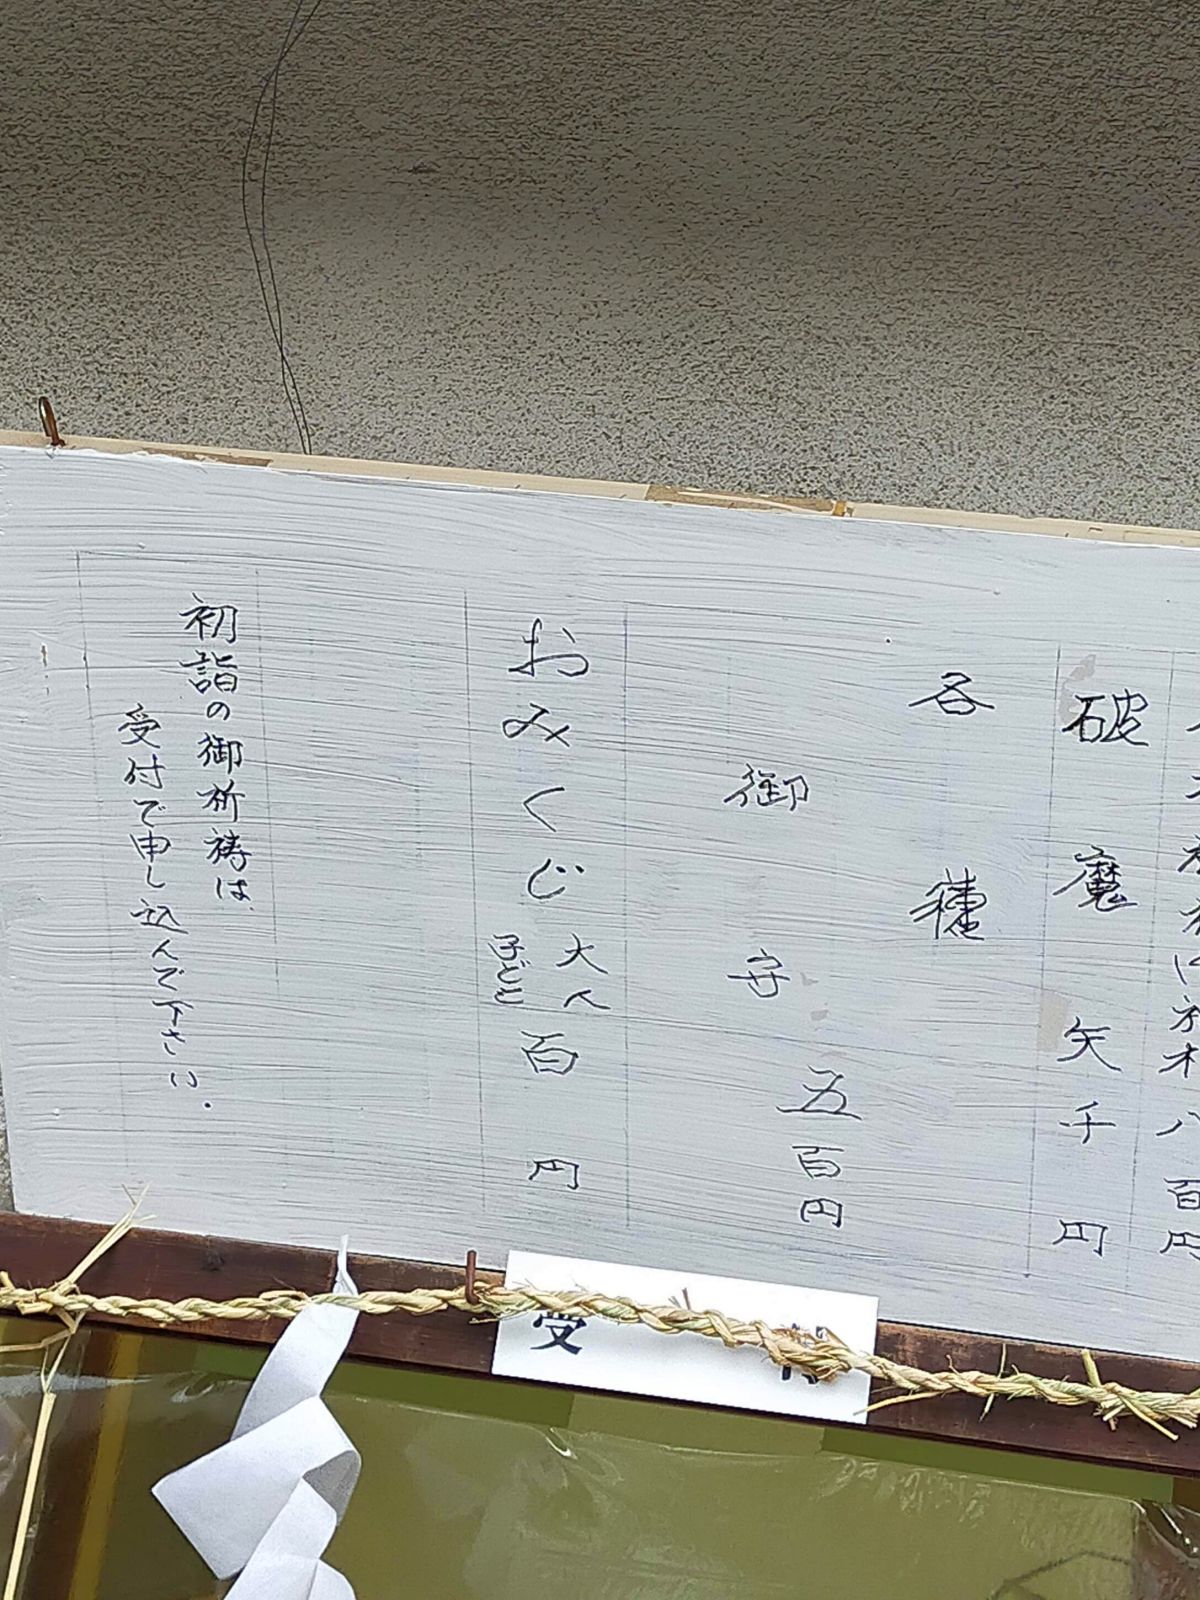 八百円
破魔矢千円
各種
御守五百円
おみくじ大人子ども百円
初詣の御祈祷は、
受付で申し込んで下さい.
受付